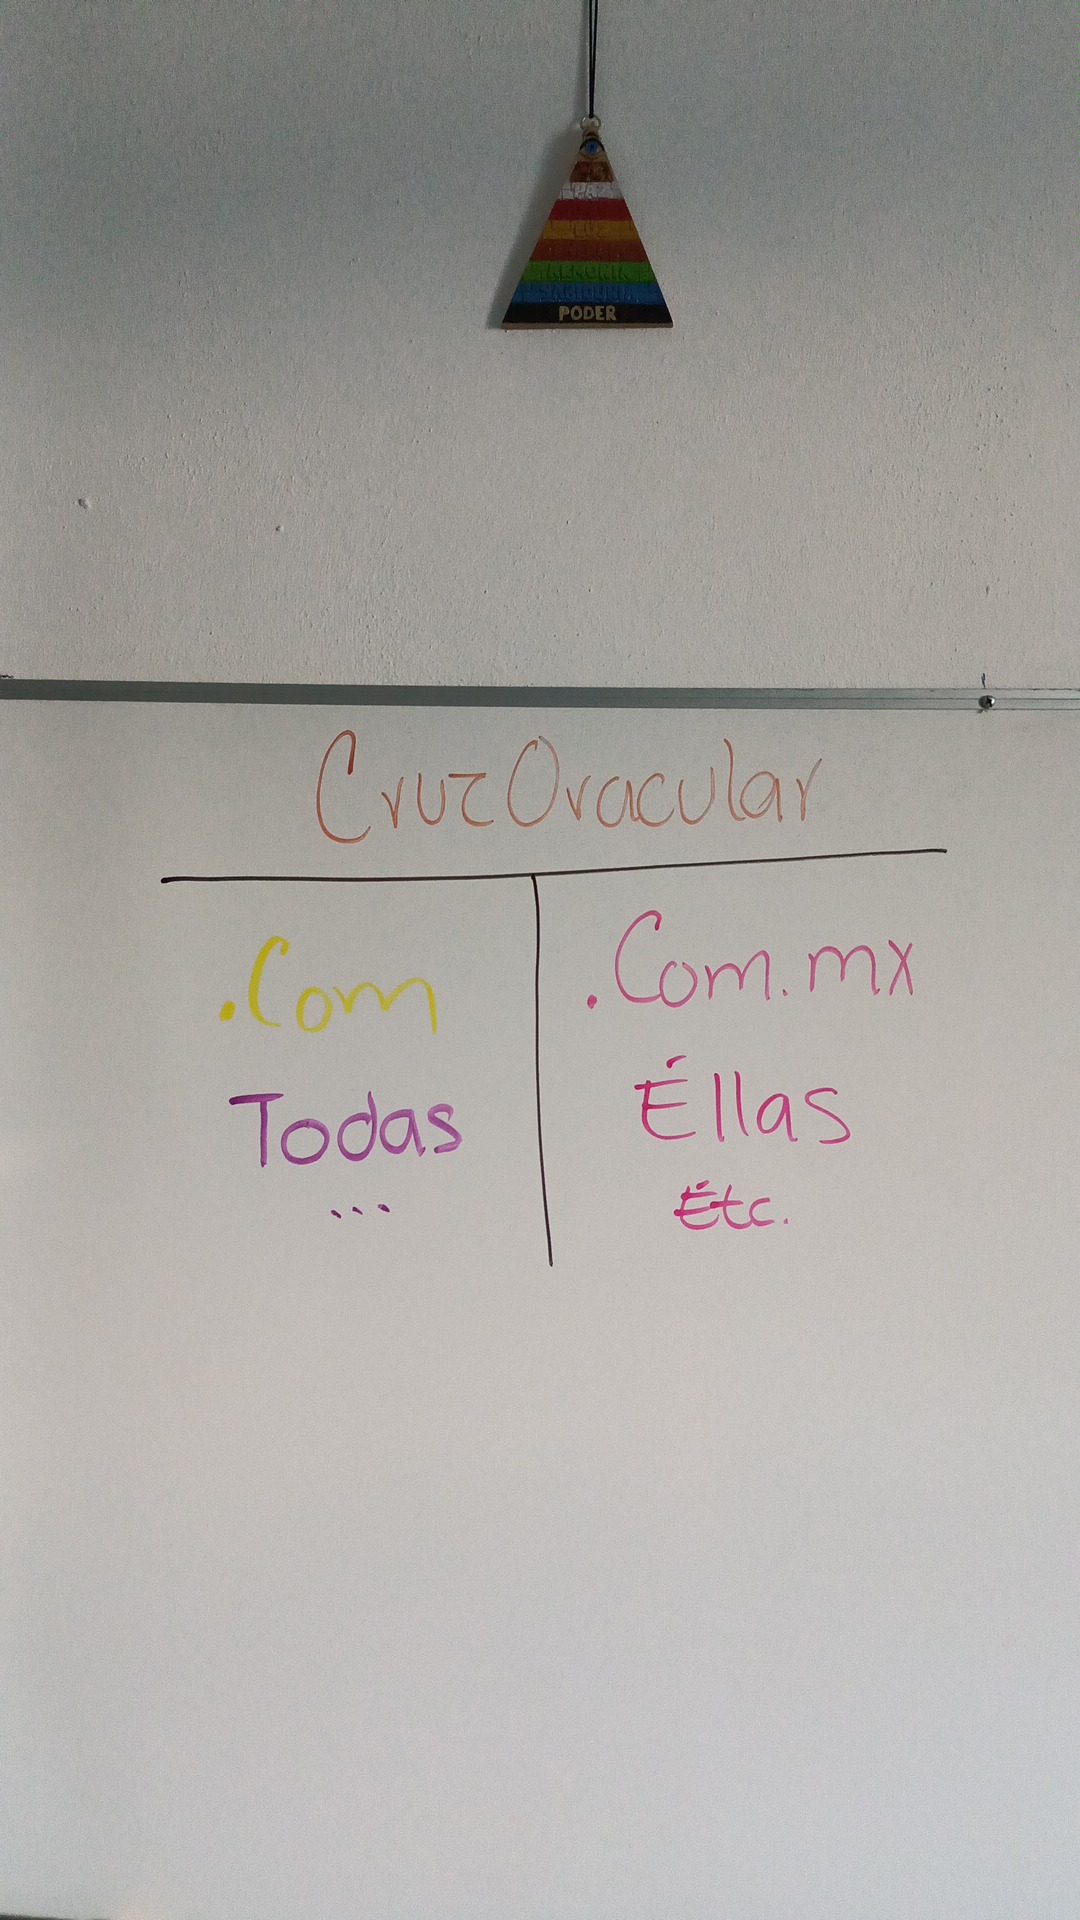 PAZ
LUZ
ENERGIA
SABIDURIA
PODER
CruzOracular
.Com
.Com.mx
Todas
Éllas
...
Étc.